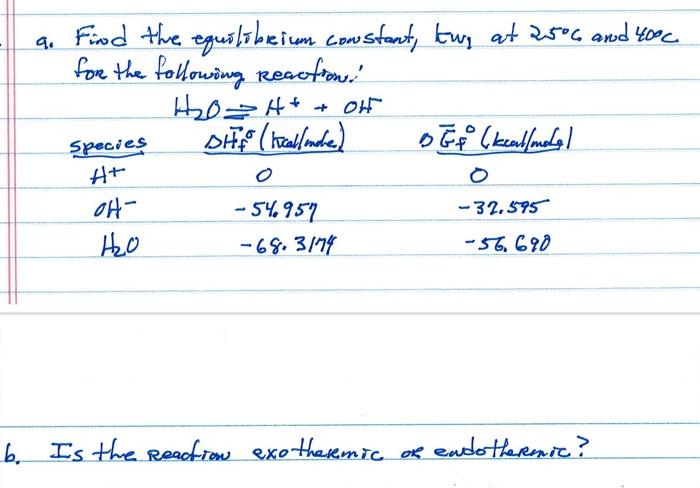 a. Find the equilibrium constant, kw, at 25°C and 40°C
for the following Reaction:
H₂O ⇌ H+ + OH-
Species ΔH̄f° (kcal/mole) ΔḠf° (kcal/mole)
H+ 0 0
OH- -54.957 -37.595
H₂O -68.3174 -56.690
b. Is the Reaction exothermic or endothermic?